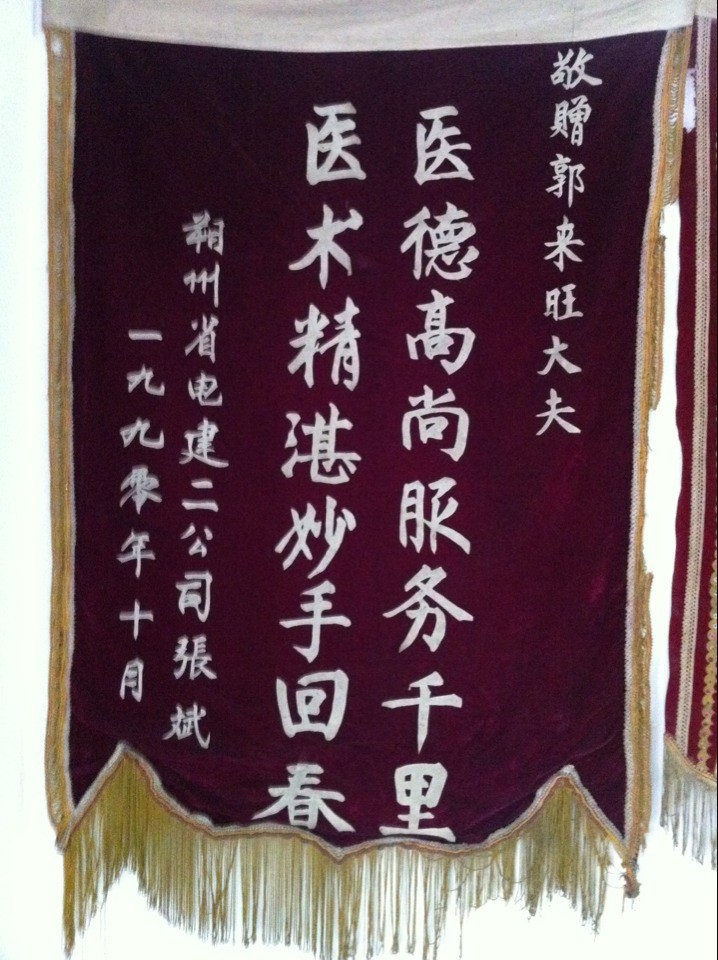 敬贈郭来旺大夫
医德高尚服务千里
医术精湛妙手回春
朔州省电建二公司張斌
一九九零年十月